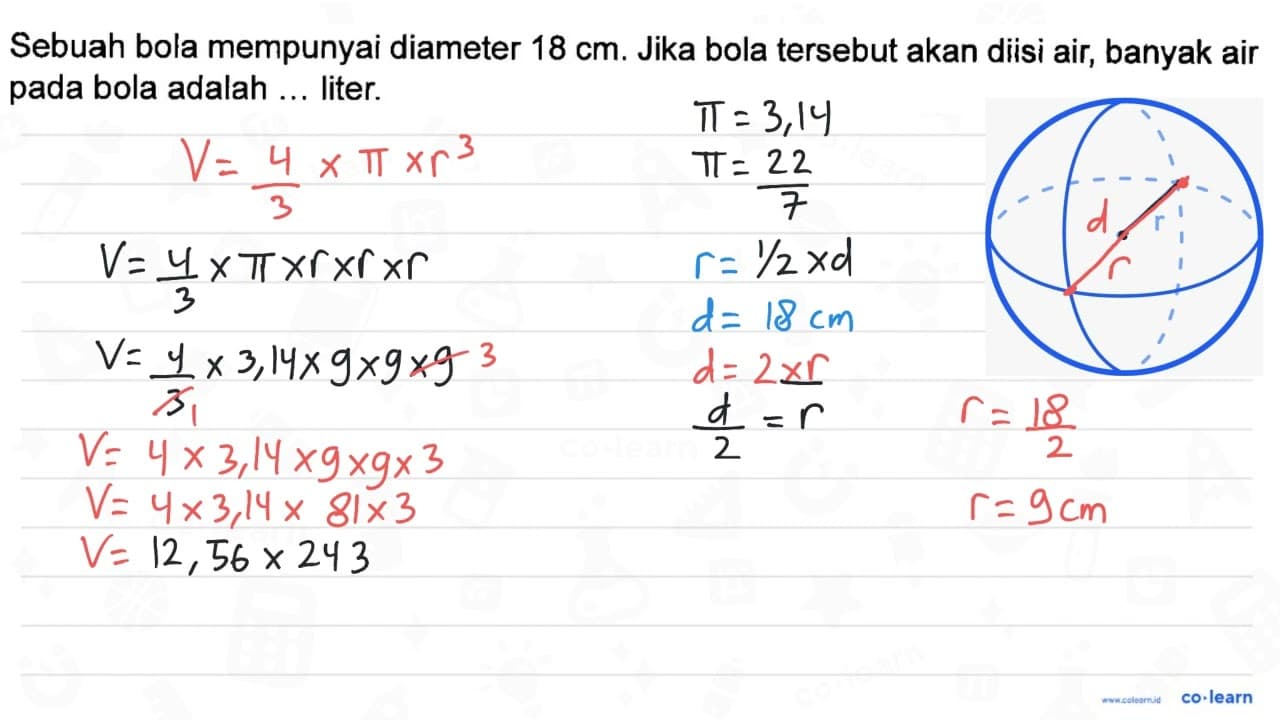 Sebuah bola mempunyai diameter 18 cm. Jika bola tersebut akan diisi air, banyak air
pada bola adalah ... liter.
V = 4/3 × π × r³
V = 4/3 × π × r × r × r
V = 4/3 1 × 3,14 × 9 × 9 × 9 3
V = 4 × 3,14 × 9 × 9 × 3
V = 4 × 3,14 × 81 × 3
V = 12,56 × 243
π = 3,14
π = 22/7
r = 1/2 × d
d = 18 cm
d = 2 × r
d/2 = r
d
r
r
r = 18/2
r = 9 cm
co·learn
www.colearn.id co·learn